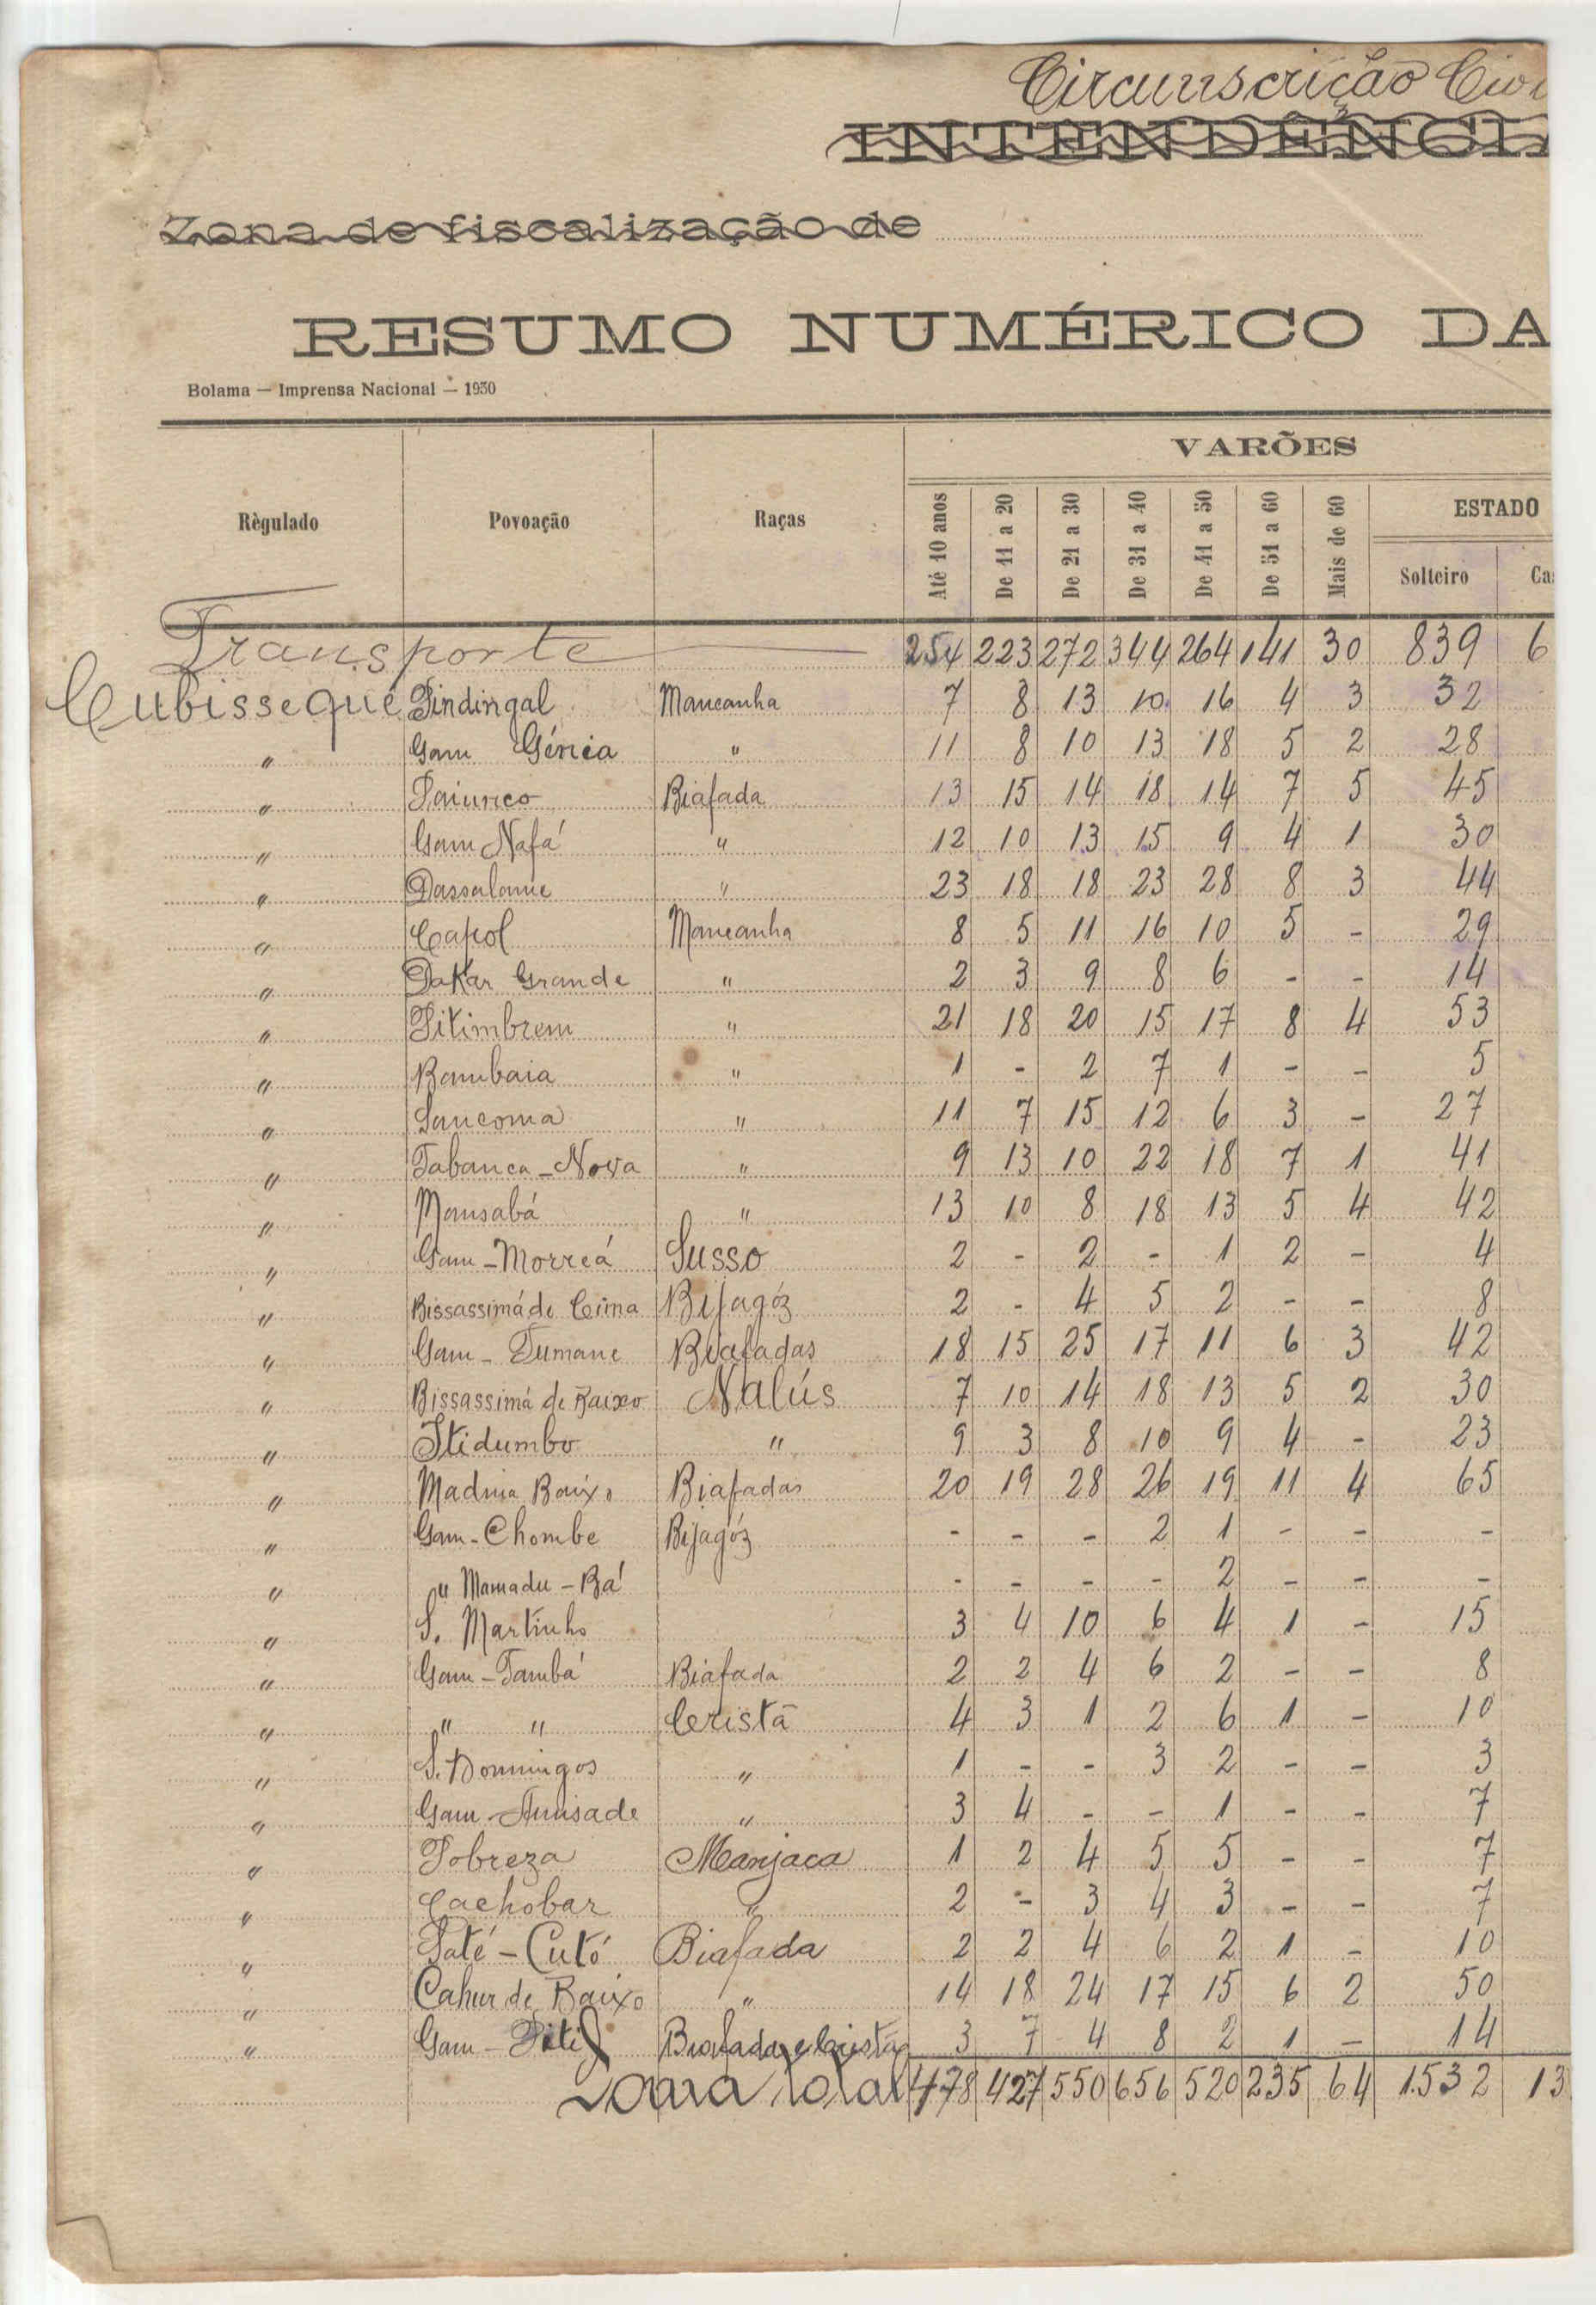 Circunscrição Civi
INTENDÊNCIA
Zona de fiscalização de
RESUMO NUMÉRICO DA
Bolama — Imprensa Nacional — 1930
VARÕES
Règulado Povoação Raças Até 10 anos De 11 a 20 De 21 a 30 De 31 a 40 De 41 a 50 De 51 a 60 Mais de 60 ESTADO
Solteiro Ca
Transporte 254 223 272 344 264 141 30 839 6
Cubisseque Pindingal Mancanha 7 8 13 10 16 4 3 32
" Gam Génia " 11 8 10 13 18 5 2 28
" Paiunco Biafada 13 15 14 18 14 7 5 45
" Gam Nafá " 12 10 13 15 9 4 1 30
" Dassalame " 23 18 18 23 28 8 3 44
" Capol Mancanha 8 5 11 16 10 5 - 29
" Dakar Grande " 2 3 9 8 6 - - 14
" Pitimbrem " 21 18 20 15 17 8 4 53
" Bambaia " 1 - 2 7 1 - - 5
" Sancoma " 11 7 15 12 6 3 - 27
" Tabanca - Nova " 9 13 10 22 18 7 1 41
" Mansabá " 13 10 8 18 13 5 4 42
" Gam - Morreá Susso 2 - 2 - 1 2 - 4
" Bissassimá de Cima Bijagóz 2 - 4 5 2 - - 8
" Gam - Dumane Biafadas 18 15 25 17 11 6 3 42
" Bissassimá de Baixo Nalús 7 10 14 18 13 5 2 30
" Itidumbo " 9 3 8 10 9 4 - 23
" Madina Baixo Biafadas 20 19 28 26 19 11 4 65
" Gam - Chombe Bijagóz - - - 2 1 - - -
" " Mamadu - Bá - - - - 2 - - -
" S. Martinho 3 4 10 6 4 1 - 15
" Gam - Tambá Biafada 2 2 4 6 2 - - 8
" " " Cristã 4 3 1 2 6 1 - 10
" S. Domingos " 1 - - 3 2 - - 3
" Gam - Amisade " 3 4 - - 1 - - 7
" Pobreza Manjaca 1 2 4 5 5 - - 7
" Cachobar " 2 - 3 4 3 - - 7
" Paté - Cutó Biafada 2 2 4 6 2 1 - 10
" Cahur de Baixo " 14 18 24 17 15 6 2 50
" Gam - Piti Biafada e Cristã 3 7 4 8 2 1 - 14
Soma total 478 427 550 656 520 235 64 1.532 13